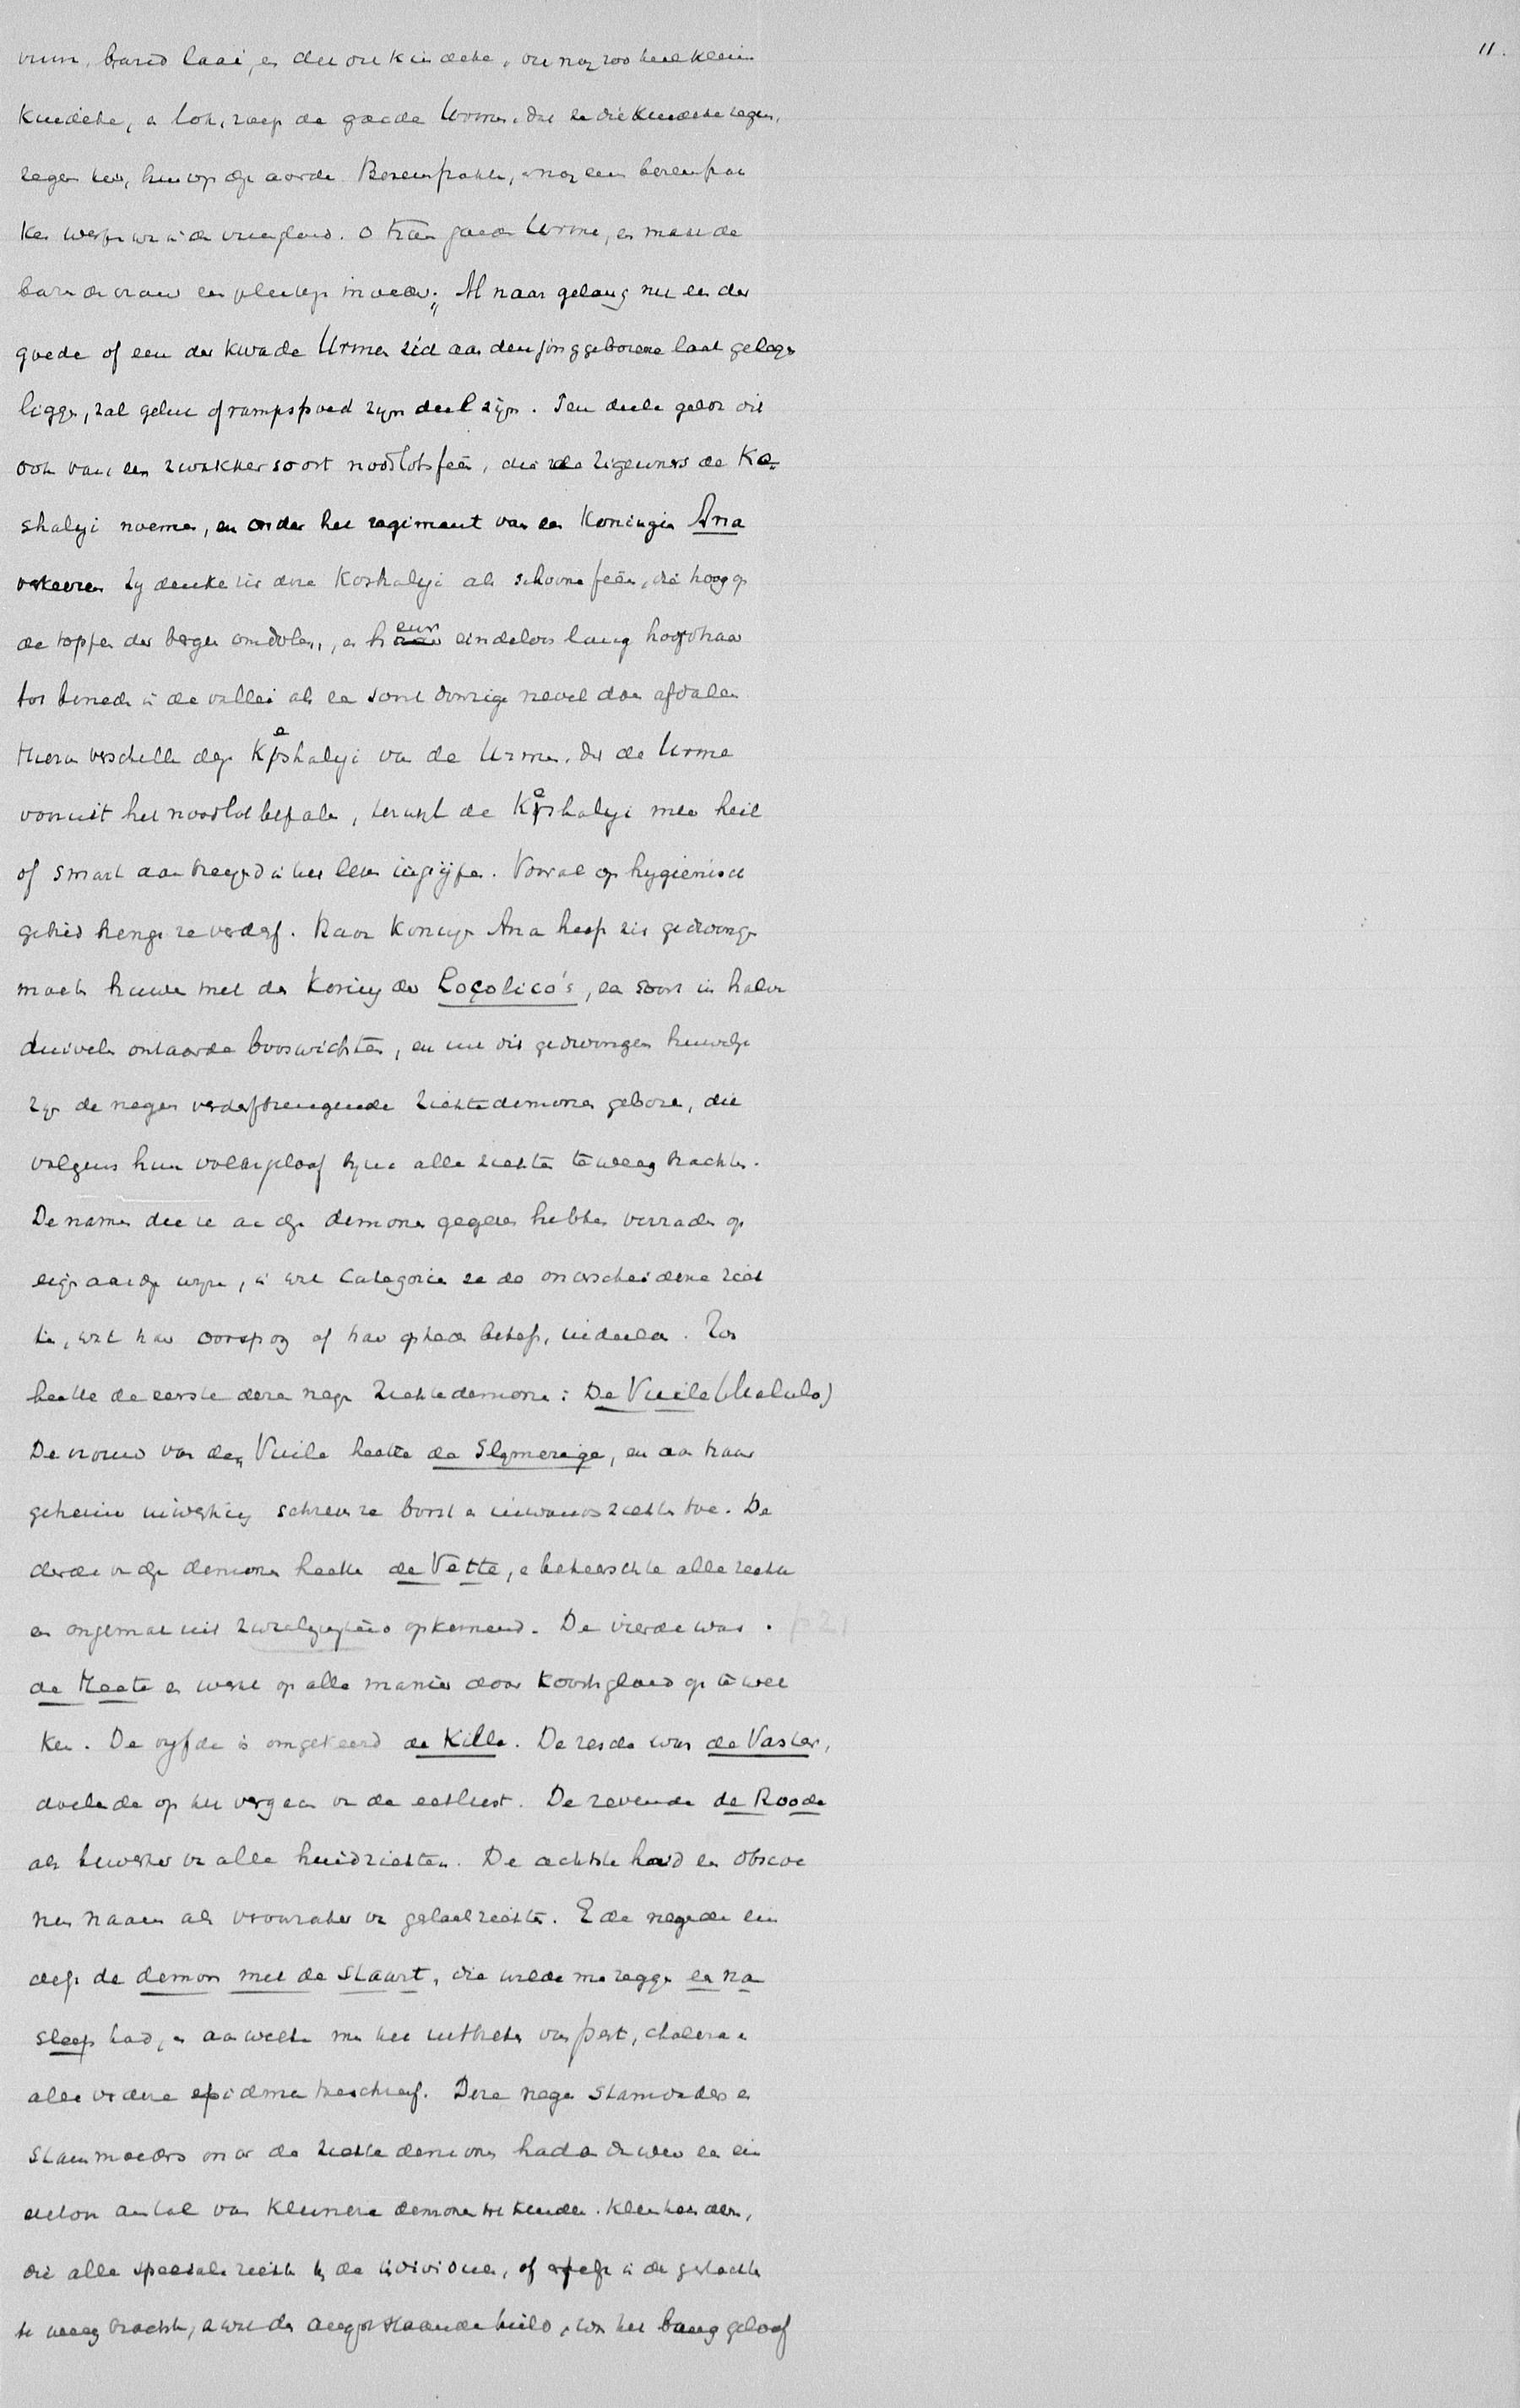 11.
vuur, brand laai, en dek ons kindeke, ons nog zoo heel klein
kindeke, en lok, roep de goede Urmen, dat ze die kindeke zegen,
zegen hier, hier op deze aarde. Bezemtakken, nog een bezemtak
ken werpen we in de vuurgloed. O kom goede Urme, en maak de
barende vrouw een gelukkige moeder." Al naar gelang nu een der
goede of een der kwade Urmen zich aan den jonggeborene laat gelegen
liggen, zal geluk of rampspoed zijn deel zijn. Ten deele geldt dit
ook van een zwakker soort noodlotsfeën, die de Zigeuners de Ke-
shalyi noemen, en onder het regiment van een Koningin Ana
verkeeren. Zij denken zich deze Koshalyi als schoone feën, die hoog op
de toppen der bergen omdolen, en heur eindeloos lang hoofdhaar
tot beneden in de vallei als een soort donzige nevel doen afdalen
Hierin verschillen deze Keshalyi van de Urmen, dat de Urme
vooruit het noodlot bepalen, terwijl de Keshalyi meer heil
of smart aanbrengend in het leven ingrijpen. Vooral op hygiënisch
gebied brengen ze verderf. Haar Koningin Ana heeft zich gedwongen
moeten huwen met den Koning der Loçolico's, een soort in halve
duivels ontaarde booswichten, en uit dit gedwongen huwelijk
zijn de negen verderfbrengende ziektedemonen geboren, die
volgens hun volksgeloof bijna alle ziekten teweeg brachten.
De namen die ze aan deze demonen gegeven hebben verraden op
eigenaardige wijze, in welke categorieën ze de onderscheidene ziek
ten, wat haar oorsprong of haar optreden betreft, indeelen. Zoo
heette de eerste dezer negen ziektedemonen: De Vuile (Melalo)
De vrouw van den Vuile heette de Slymerige, en aan haar
geheime inwerking schreven ze borst en ingewandsziekten toe. De
derde van deze demonen heette de Vette, en beheerschte alle ziekten
en ongemak uit zwelgpartijen opkomend. De vierde was
de Heete en werkte op alle manier door koortsgloed op te wek
ken. De vyfde is omgekeerd de Kille. De zesde was de Vaster,
doelende op het vergaan van de eetlust. De zevende de Roode
als bewerker van alle huidziekten. De achtste had een obscoe
nen naam als veroorzaker van geslachtsziekten. En de negende ein
delijk de demon met de staart, die wilde men zeggen een na
sleep had, en aan welke men het uitbreken van pest, cholera en
alle verdere epidemieën toeschreef. Deze negen stamvaders en
stammoeders onder de ziektedemonen hadden dan weer een ein
deloos aantal van kleinere demonen tot kinderen. Kleinkinderen,
die alle speciale ziekten bij de individuen, of in de geslachten
te weeg brachten, en wat daar tegenover staande hield, was het bang geloof